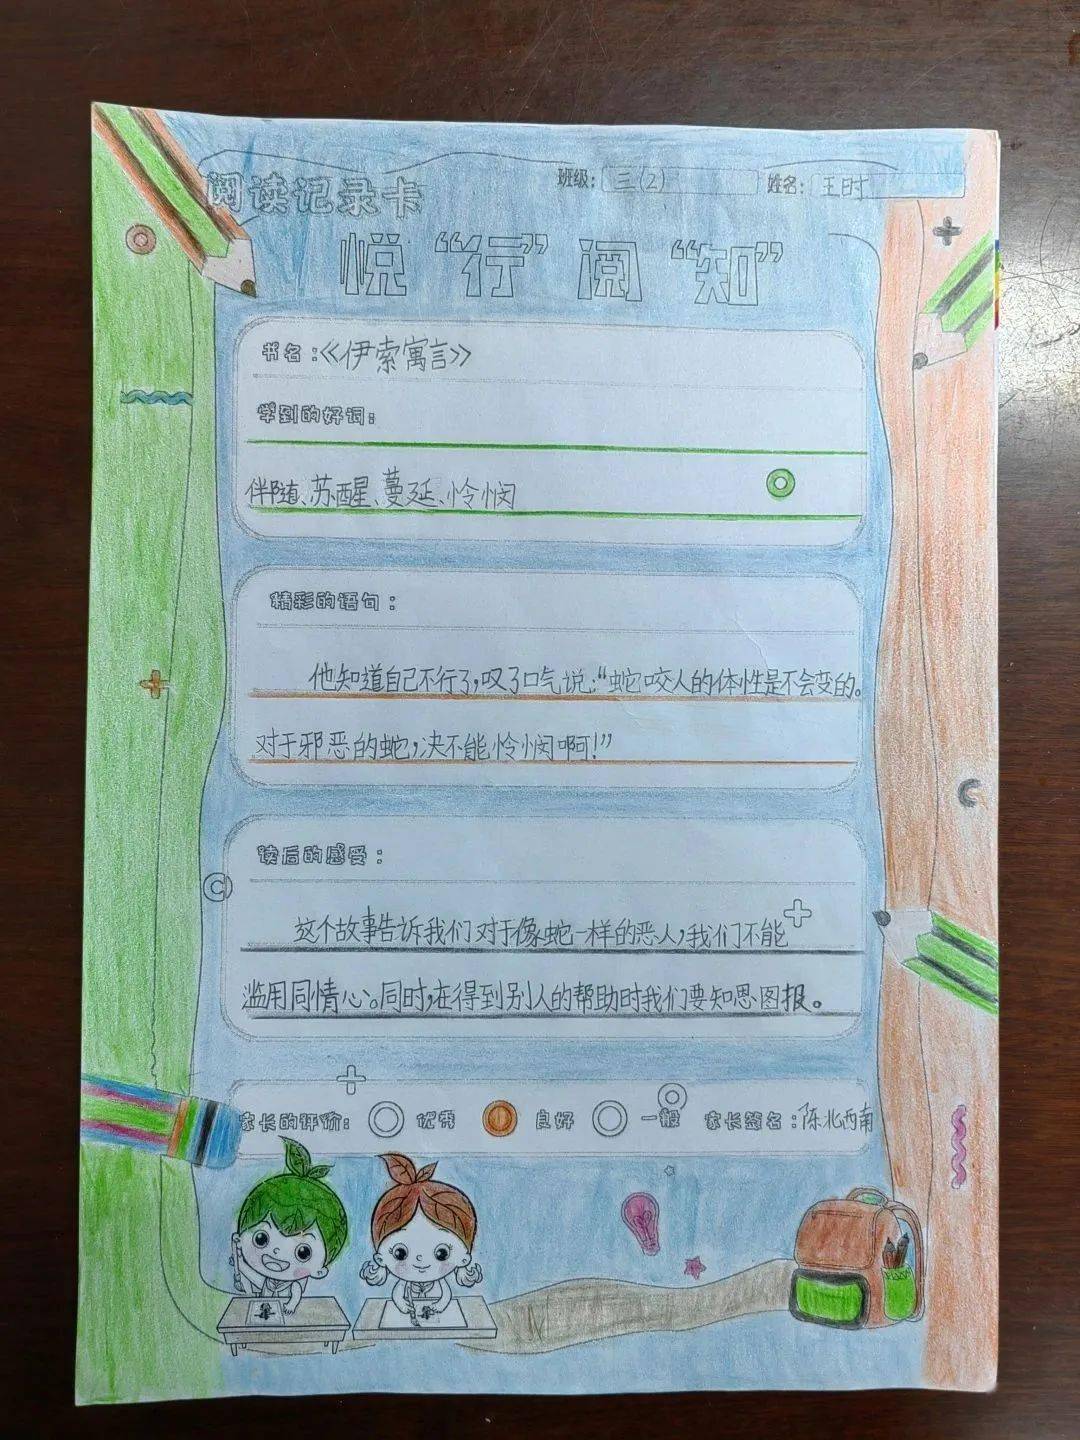 阅读记录卡
班级：三(2)
姓名：王时
悦“行”阅“知”
书名：《伊索寓言》
学到的好词：
伴随、苏醒、蔓延、怜悯
精彩的语句：
他知道自己不行了，叹了口气说：“蛇咬人的体性是不会变的。
对于邪恶的蛇，决不能怜悯啊！”
读后的感受：
这个故事告诉我们对于像蛇一样的恶人，我们不能
滥用同情心。同时，在得到别人的帮助时我们要知恩图报。
家长的评价： 优秀 良好 一般 家长签名：陈北西南